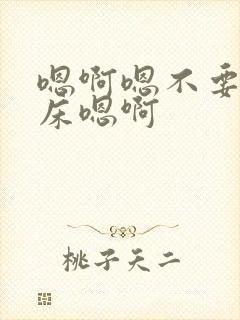 嗯啊嗯不要
床嗯啊
桃子天二